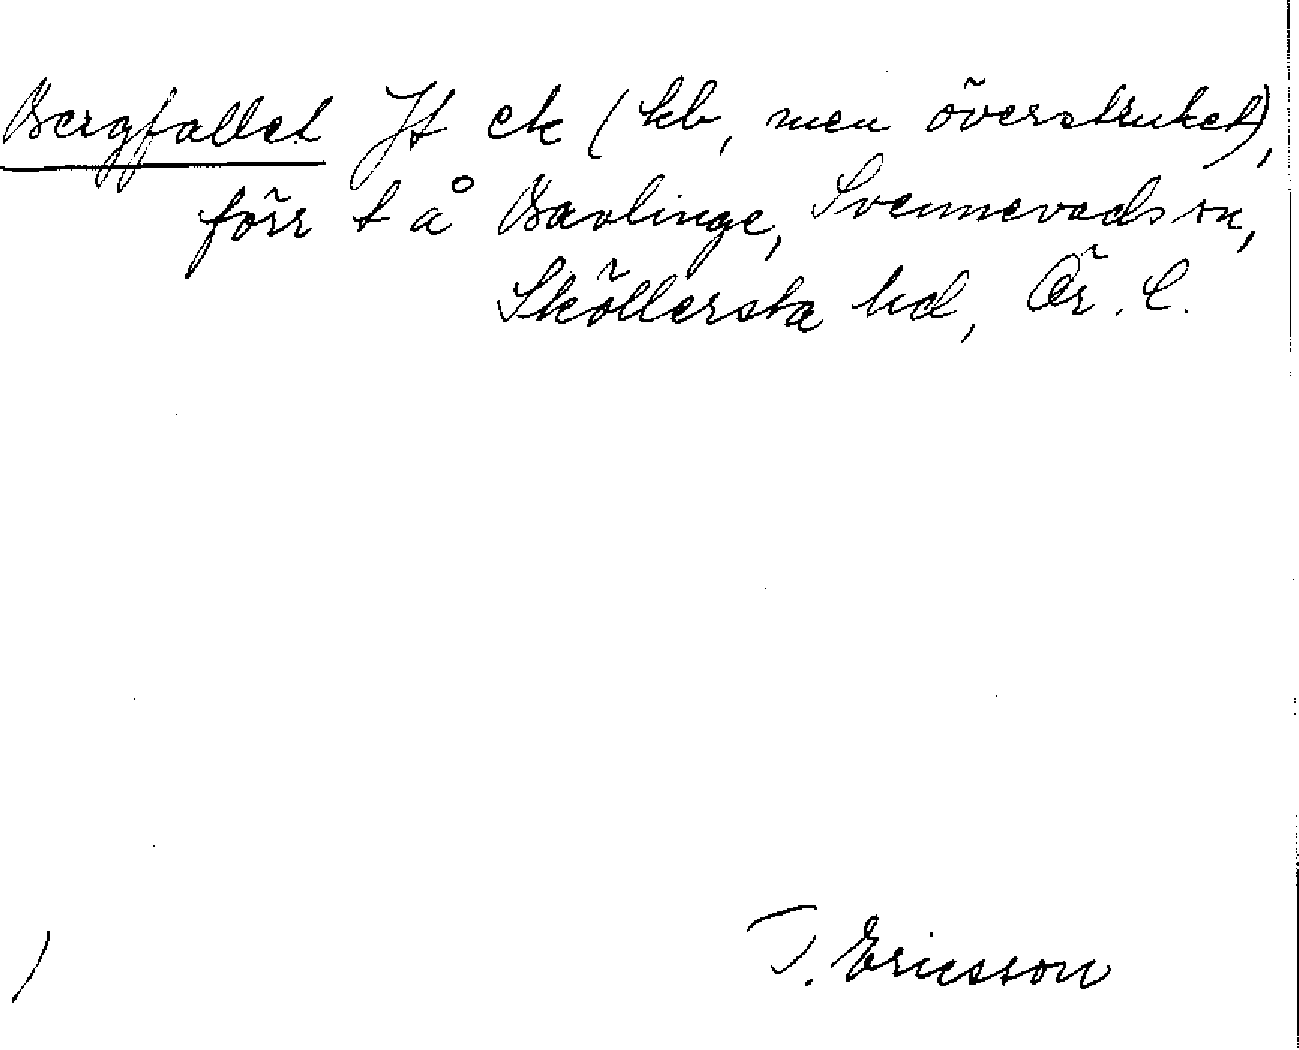 Bergfallet Jt ek (kb, men överstruket),
förr t å Bavlinge, Svennevads sn,
Sköllersta hd, Ör. l.
) T. Ericsson